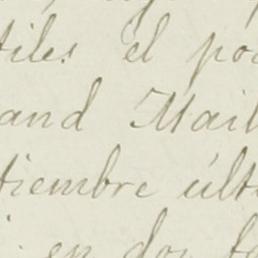 tiles el po
and Mail
tiembre últ
en dos fo